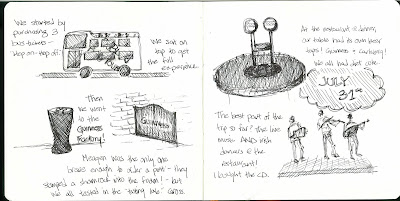 We started by
purchasing 3
bus tickets -
Hop on - Hop off!
We sat on
top to get
the full
experience.
Then
we went
to the
Guinness
Factory!
Guinness
Meagan was the only one
brave enough to order a pint - they
stamped a shamrock into the foam! - but
we all tasted in the "tasting lab".
At the restaurant @ dinner,
our tables had its own beer
taps! Guinness + Carlsberg!
We all had diet coke.
JULY
31st
The best part of the
trip so far? The live
music AND Irish
dancers @ the
restaurant!
I bought the CD.